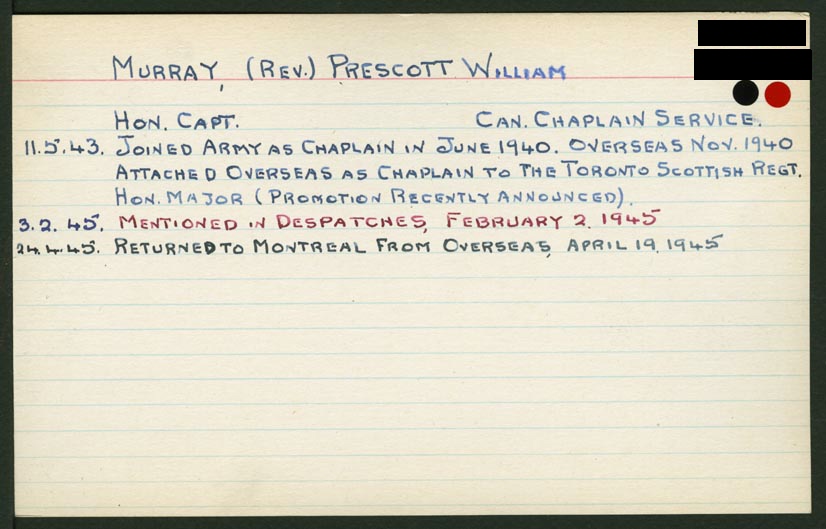 MURRAY, (REV.) PRESCOTT WILLIAM
HON. CAPT. CAN. CHAPLAIN SERVICE.
11.5.43. JOINED ARMY AS CHAPLAIN IN JUNE 1940. OVERSEAS NOV. 1940
ATTACHED OVERSEAS AS CHAPLAIN TO THE TORONTO SCOTTISH REGT.
HON. MAJOR (PROMOTION RECENTLY ANNOUNCED).
3.2.45. MENTIONED IN DESPATCHES, FEBRUARY 2, 1945
24.4.45. RETURNED TO MONTREAL FROM OVERSEAS, APRIL 19, 1945